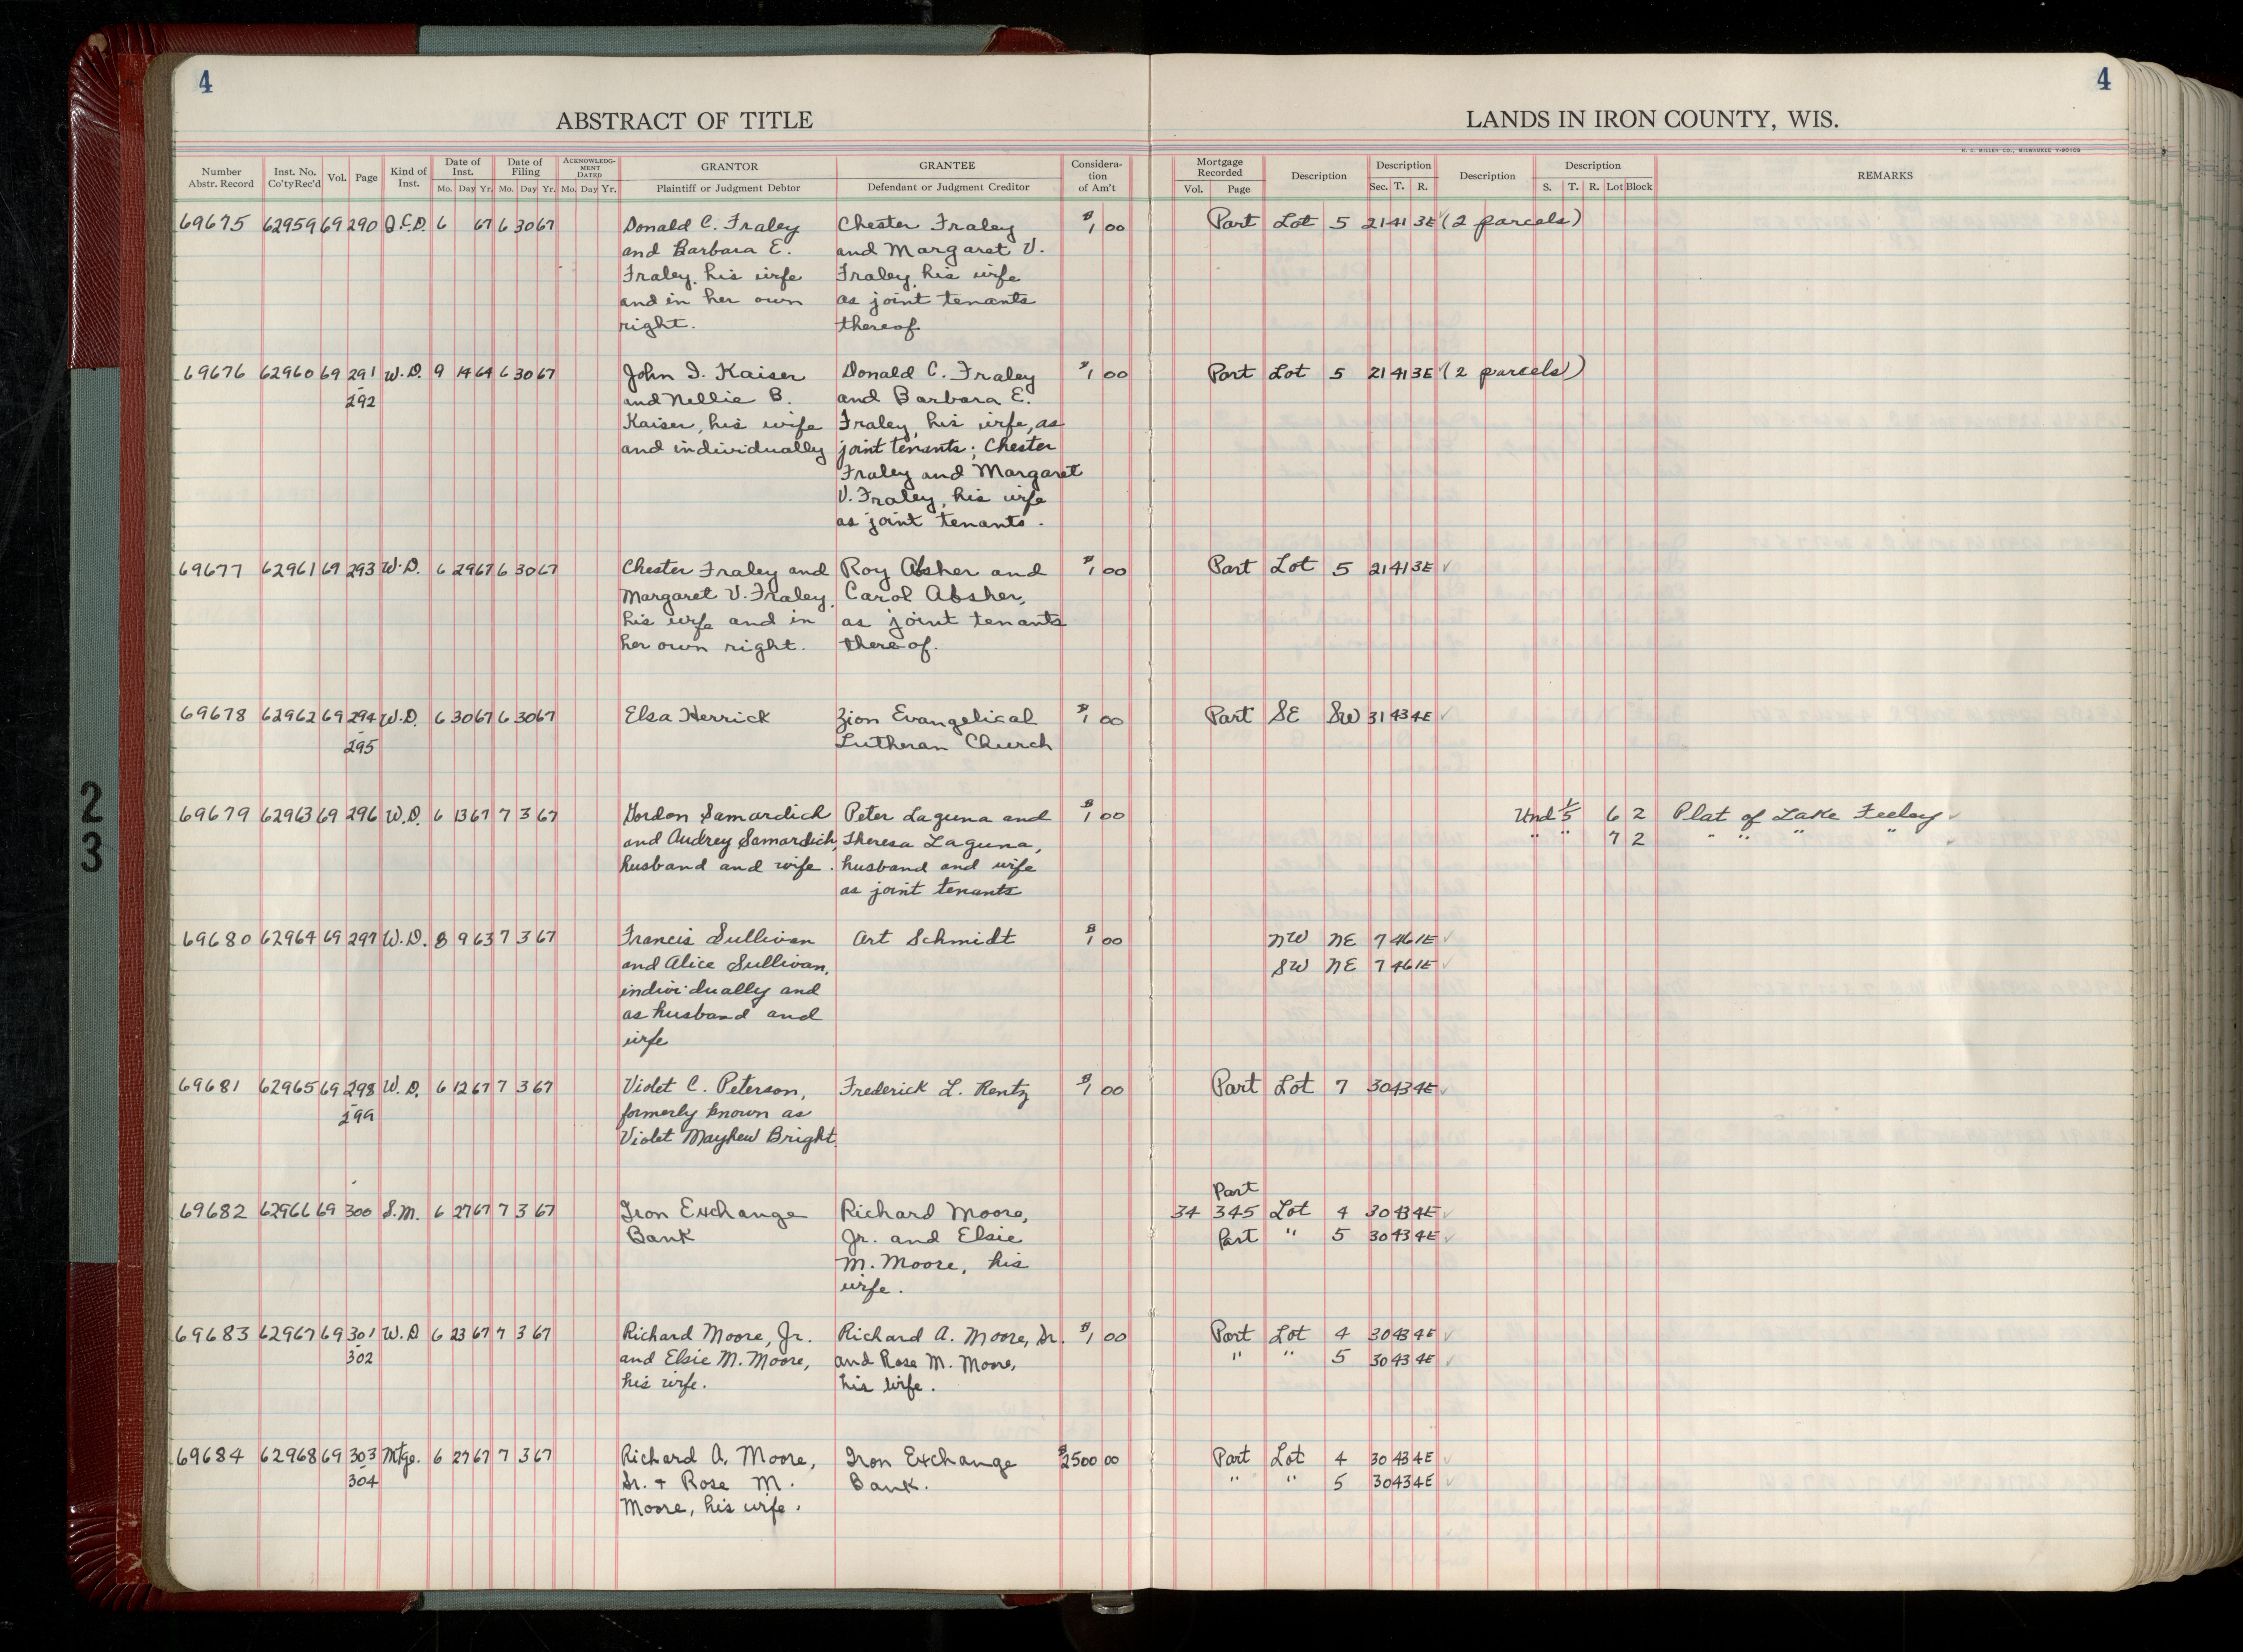 4
4
ABSTRACT OF TITLE
LANDS IN IRON COUNTY, WIS.
H. C. MILLER CO., MILWAUKEE
Number Abstr. Record Inst. No. Co'tyRec'd Vol. Page Kind of Inst. Date of Inst. Mo. Day Yr. Date of Filing Mo. Day Yr. ACKNOWLEDGMENT DATED Mo. Day Yr. GRANTOR Plaintiff or Judgment Debtor GRANTEE Defendant or Judgment Creditor Considera-tion of Am't Mortgage Recorded Vol. Page Description Description Sec. T. R. Description Description S. T. R. Lot Block REMARKS
69675 62959 69 290 Q.C.D. 6 67 6 30 67 Donald C. Fraley Chester Fraley $1 00 Part Lot 5 21 41 3E (2 parcels)
and Barbara E. and Margaret V.
Fraley, his wife Fraley, his wife
and in her own as joint tenants
right. thereof.
69676 62960 69 291 W.D. 9 14 64 6 30 67 John I. Kaiser Donald C. Fraley $1 00 Part Lot 5 21 41 3E (2 parcels)
- 292 and Nellie B. and Barbara E.
Kaiser, his wife Fraley, his wife, as
and individually joint tenants; Chester
Fraley and Margaret
V. Fraley, his wife
as joint tenants.
69677 62961 69 293 W.D. 6 29 67 6 30 67 Chester Fraley and Roy Absher and $1 00 Part Lot 5 21 41 3E ✓
Margaret V. Fraley, Carol Absher,
his wife and in as joint tenants
her own right. thereof.
69678 62962 69 294 W.D. 6 30 67 6 30 67 Elsa Herrick Zion Evangelical $1 00 Part SE SW 31 43 4E ✓
- 295 Lutheran Church
69679 62963 69 296 W.D. 6 13 67 7 3 67 Gordon Samardich Peter Laguna and $1 00 Und 1/5 6 2 Plat of Lake Feeley ✓
and Audrey Samardich, Theresa Laguna, " " 7 2 " " " " ✓
husband and wife. husband and wife
as joint tenants
69680 62964 69 297 W.D. 8 9 63 7 3 67 Francis Sullivan Art Schmidt $1 00 NW NE 7 46 1E ✓
and Alice Sullivan, SW NE 7 46 1E ✓
individually and
as husband and
wife
69681 62965 69 298 W.D. 6 12 67 7 3 67 Violet C. Peterson, Frederick L. Rentz $1 00 Part Lot 7 30 43 4E ✓
- 299 formerly known as
Violet Mayhew Bright
Part
69682 62966 69 300 S.M. 6 27 67 7 3 67 Iron Exchange Richard Moore, 34 345 Lot 4 30 43 4E ✓
Bank Jr. and Elsie Part " 5 30 43 4E ✓
M. Moore, his
wife.
69683 62967 69 301 W.D 6 23 67 7 3 67 Richard Moore, Jr. Richard A. Moore, Sr. $1 00 Part Lot 4 30 43 4E ✓
- 302 and Elsie M. Moore, and Rose M. Moore, " " 5 30 43 4E ✓
his wife. his wife.
69684 62968 69 303 Mtge. 6 27 67 7 3 67 Richard A. Moore, Iron Exchange $2500 00 Part Lot 4 30 43 4E ✓
- 304 Sr. + Rose M. Bank. " " 5 30 43 4E ✓
Moore, his wife.
2
3